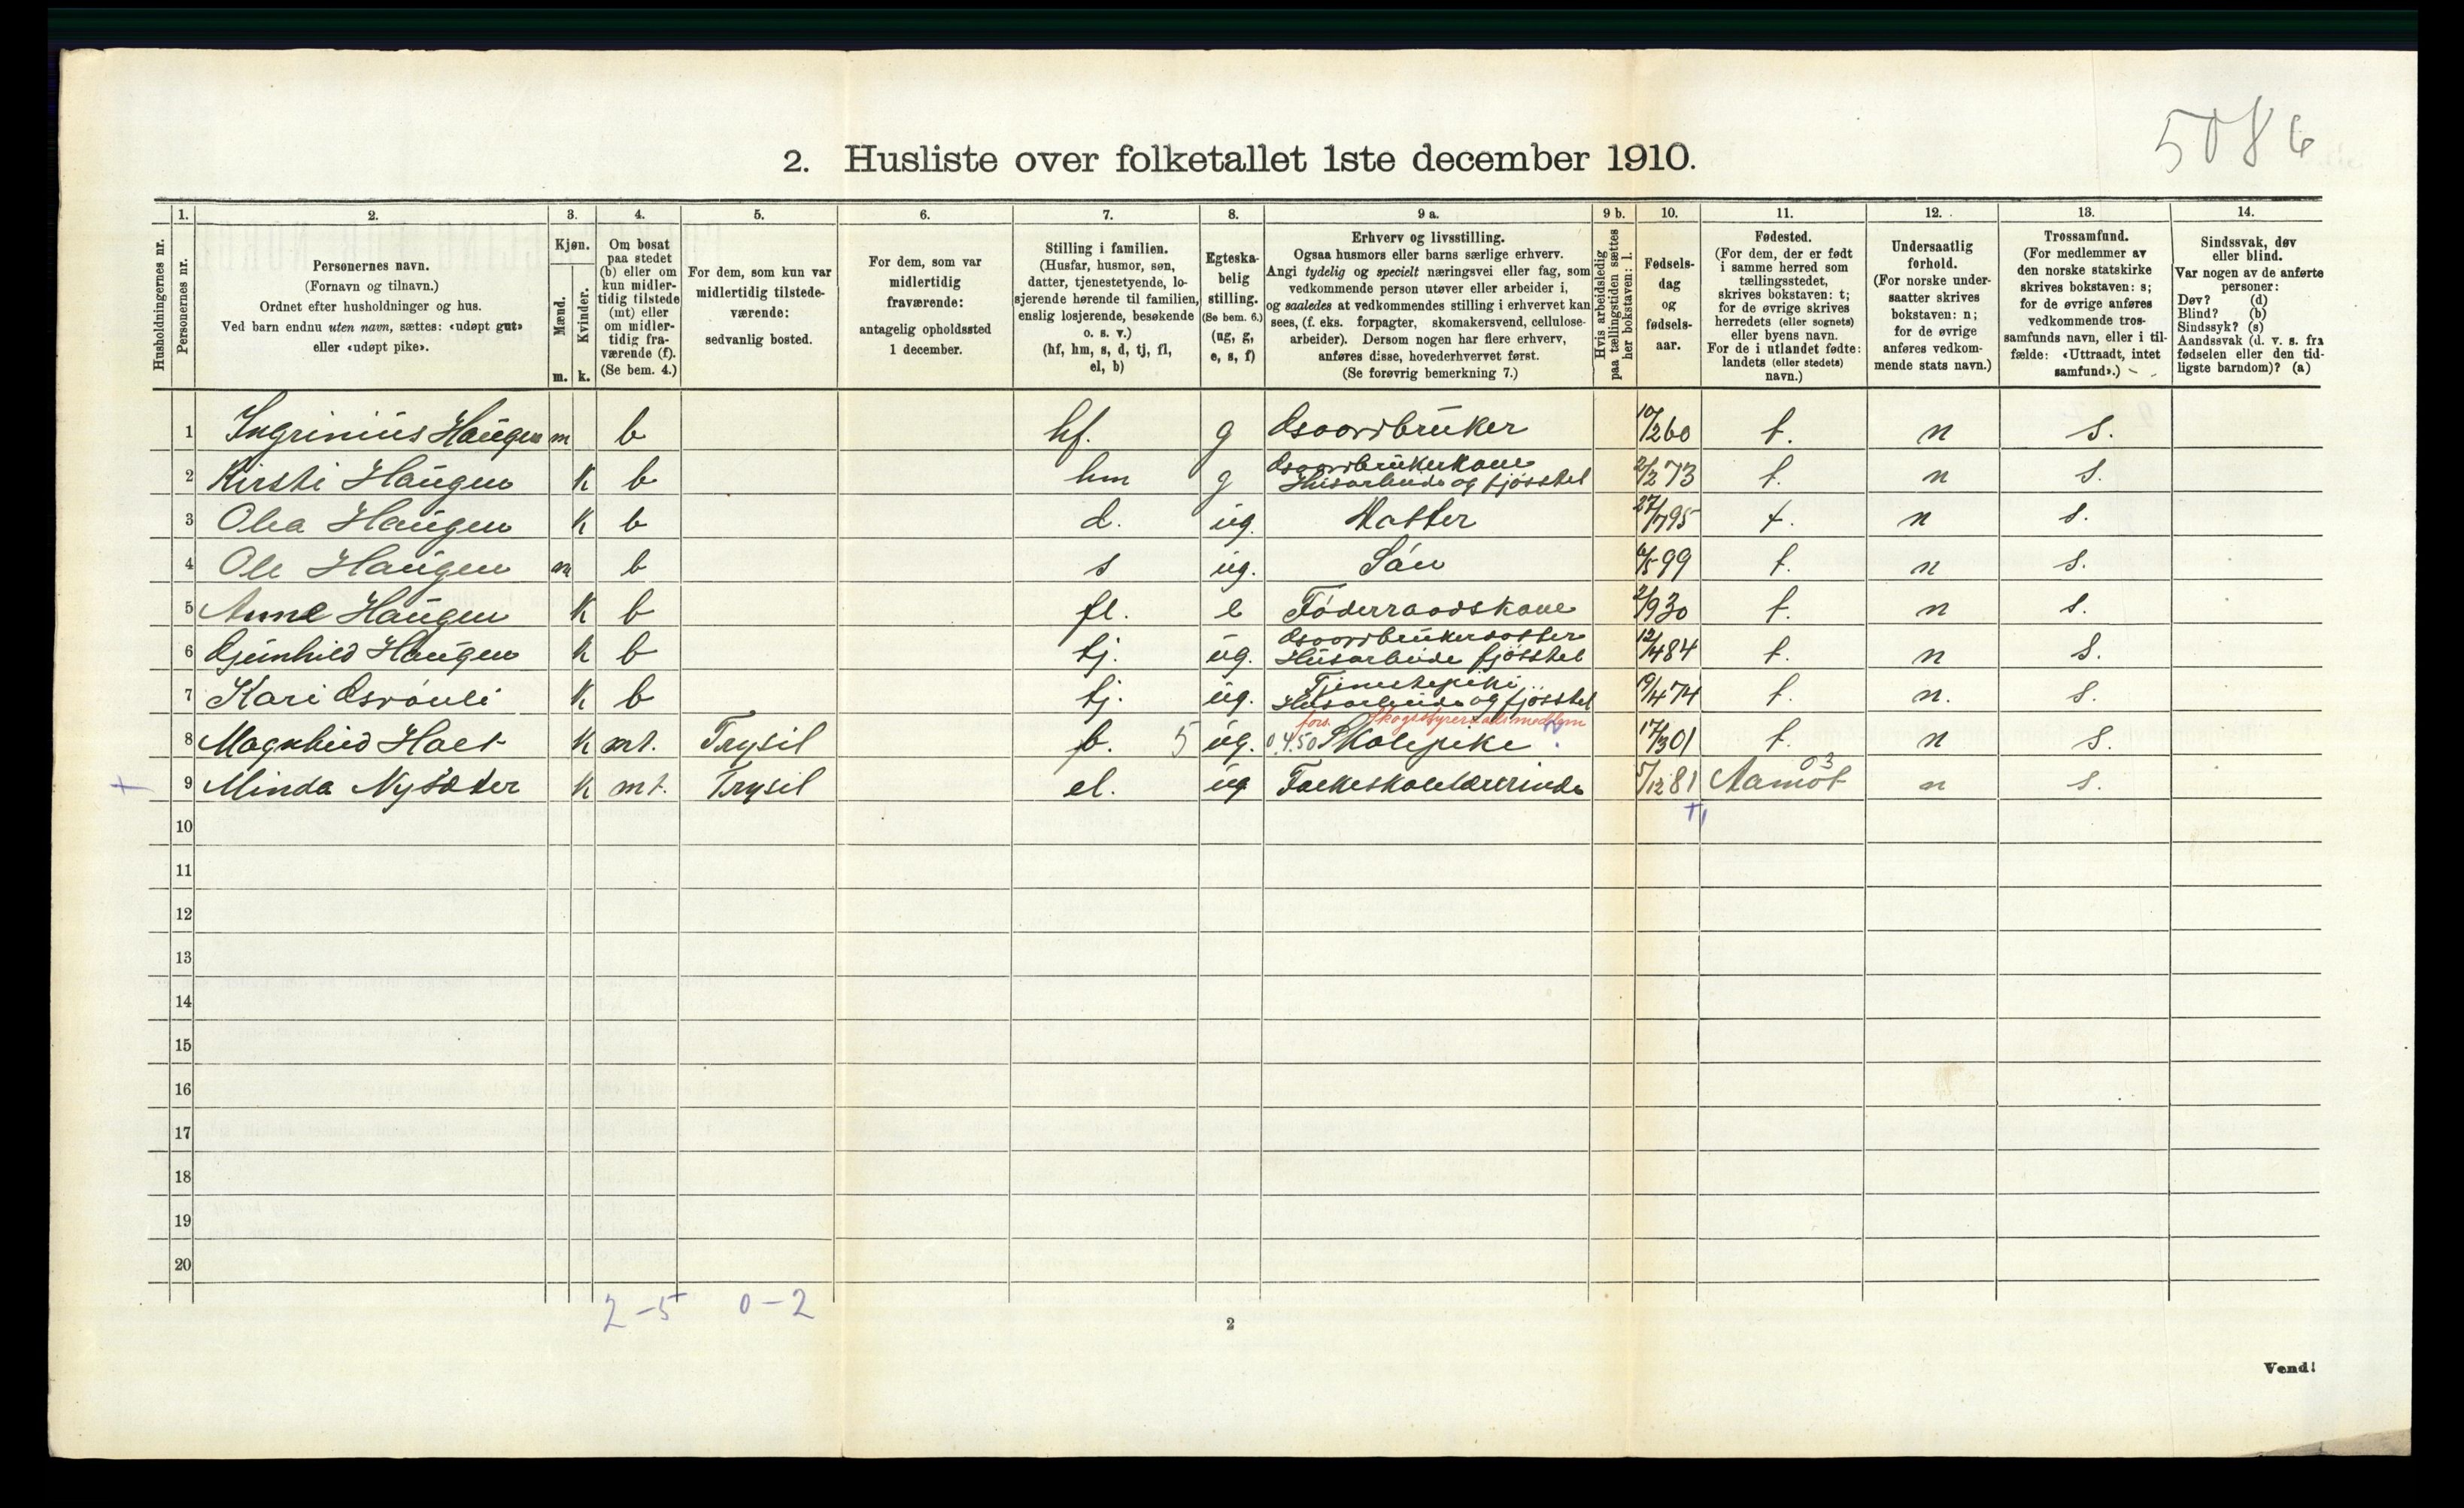 5086
2. Husliste over folketallet 1ste december 1910.
Husholdningernes nr.
1.
Personernes nr.
2.
Personernes navn.
(Fornavn og tilnavn.)
Ordnet efter husholdninger og hus.
Ved barn endnu uten navn, sættes: «udøpt gut»
eller «udøpt pike».
3.
Kjøn.
Mænd.
Kvinder.
m. k.
4.
Om bosat
paa stedet
(b) eller om
kun midler-
tidig tilstede
(mt) eller
om midler-
tidig fra-
værende (f).
(Se bem. 4.)
5.
For dem, som kun var
midlertidig tilstede-
værende:
sedvanlig bosted.
6.
For dem, som var
midlertidig
fraværende:
antagelig opholdssted
1 december.
7.
Stilling i familien.
(Husfar, husmor, søn,
datter, tjenestetyende, lo-
sjerende hørende til familien,
enslig losjerende, besøkende
o. s. v.)
(hf, hm, s, d, tj, fl,
el, b)
8.
Egteska-
belig
stilling.
(Se bem. 6.)
(ug, g,
e, s, f)
9 a.
Erhverv og livsstilling.
Ogsaa husmors eller barns særlige erhverv.
Angi tydelig og specielt næringsvei eller fag, som
vedkommende person utøver eller arbeider i,
og saaledes at vedkommendes stilling i erhvervet kan
sees, (f. eks. forpagter, skomakersvend, cellulose-
arbeider). Dersom nogen har flere erhverv,
anføres disse, hovederhvervet først.
(Se forøvrig bemerkning 7.)
9 b.
Hvis arbeidsledig
paa tællingstiden sættes
her bokstaven: l.
10.
Fødsels-
dag
og
fødsels-
aar.
11.
Fødested.
(For dem, der er født
i samme herred som
tællingsstedet,
skrives bokstaven: t;
for de øvrige skrives
herredets (eller sognets)
eller byens navn.
For de i utlandet fødte:
landets (eller stedets)
navn.)
12.
Undersaatlig
forhold.
(For norske under-
saatter skrives
bokstaven: n;
for de øvrige
anføres vedkom-
mende stats navn.)
13.
Trossamfund.
(For medlemmer av
den norske statskirke
skrives bokstaven: s;
for de øvrige anføres
vedkommende tros-
samfunds navn, eller i til-
fælde: «Uttraadt, intet
samfund».)
14.
Sindssvak, døv
eller blind.
Var nogen av de anførte
personer:
Døv? (d)
Blind? (b)
Sindssyk? (s)
Aandssvak (d. v. s. fra
fødselen eller den tid-
ligste barndom)? (a)
1 Ingrinius Haugen m b hf. g Gaardbruker 10/2 60 t. n s.
2 Kirsti Haugen k b hm g Gaardbrukerkone
Husarbeide og fjøsstel 2/2 73 t. n s.
3 Olea Haugen k b d. ug. Datter 27/7 95 t. n s.
4 Ole Haugen m b s ug. Søn 6/5 99 t. n s.
5 Anne Haugen k b fl. e Føderaadskone 2/9 30 t. n s.
6 Gjunhild Haugen k b tj. ug. Gaardbrukerdatter
Husarbeide fjøsstel 12/4 84 t. n s.
7 Kari k b tj. ug. Tjenestepike
Husarbeide og fjøsstel 19/4 74 t. n. s.
fors. Skogstyreraadsmedlem
8 Magnhild Holt k mt. Trysil b. 5 ug. 0.4.50 Skolepike 17/3 01 t. n s.
03
9 Minda Nysæter k mt. Trysil el. ug Folkeskolelærerinde 5/12 81 Aamot n s.
10
11
12
13
14
15
16
17
18
19
20
2-5 0-2
2
Vend!